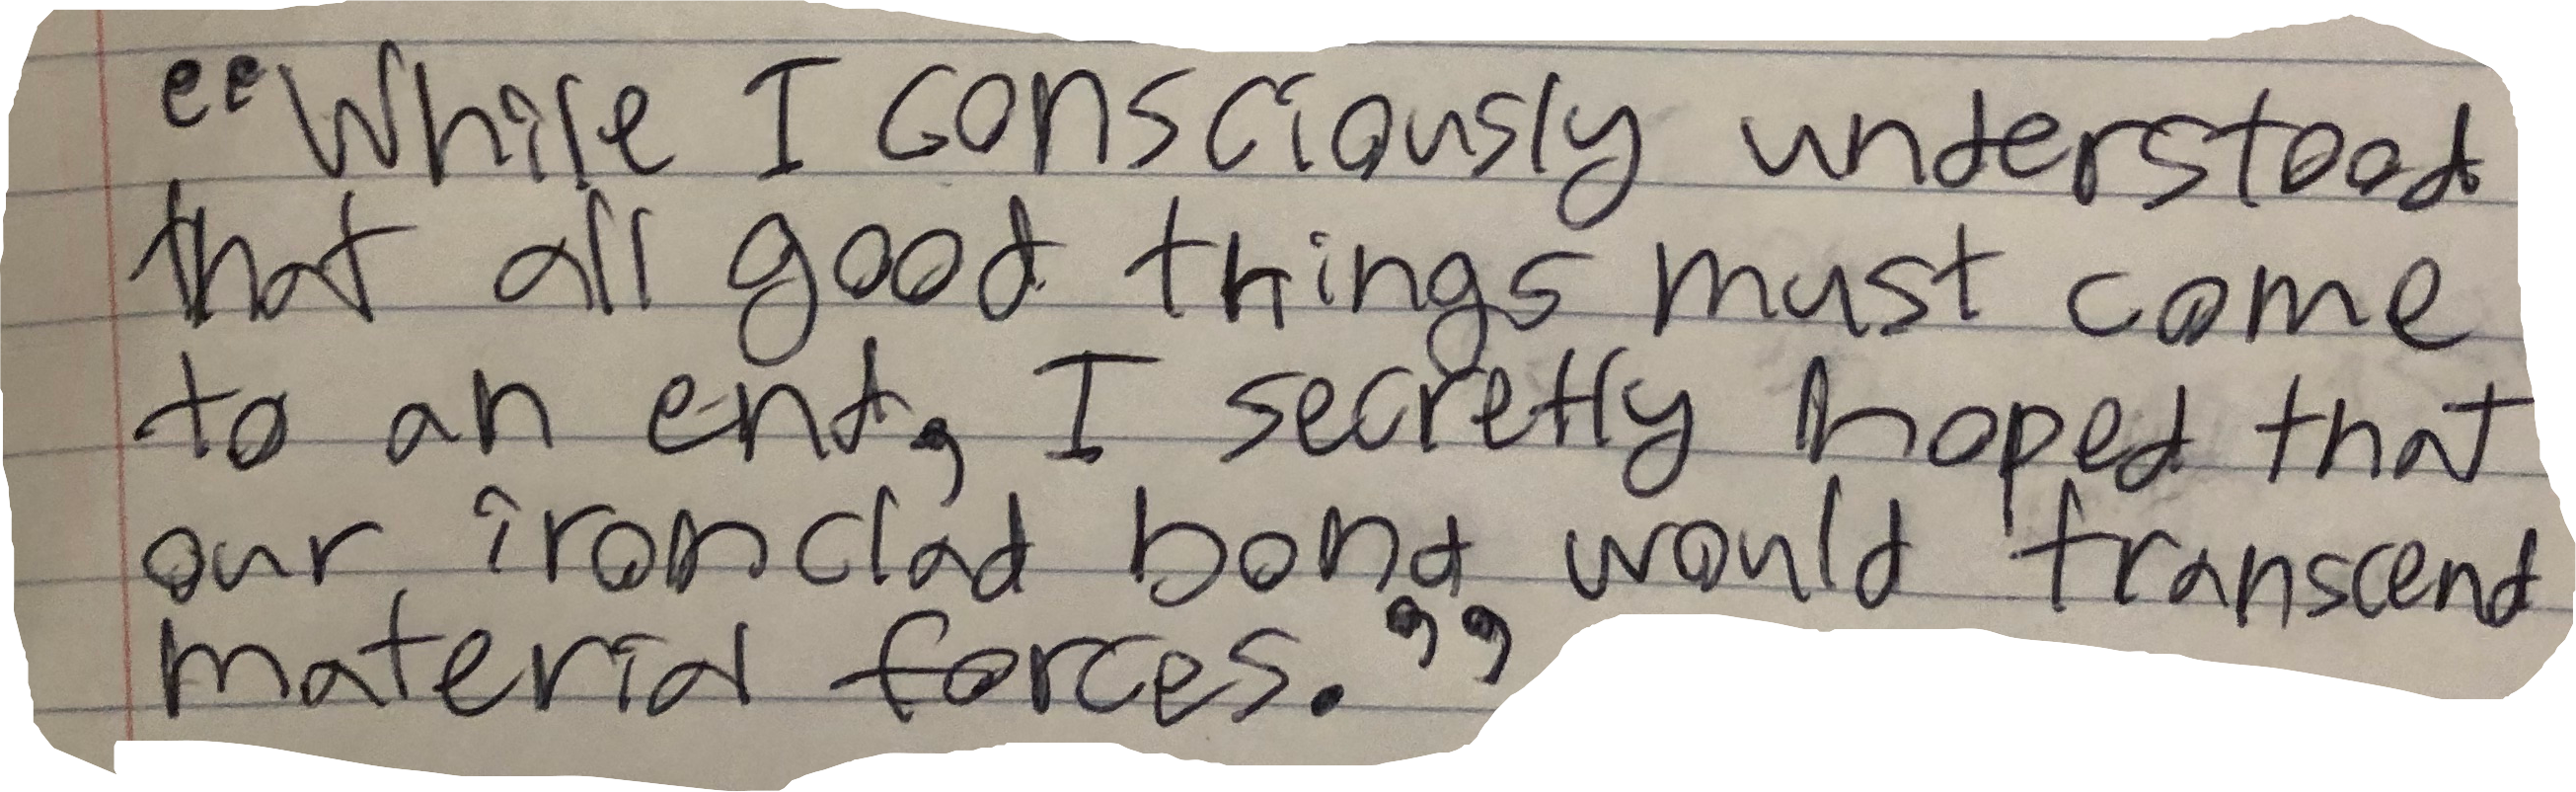 “While I consciously understood
that all good things must come
to an end, I secretly hoped that
our ironclad bond would transcend
material forces.”